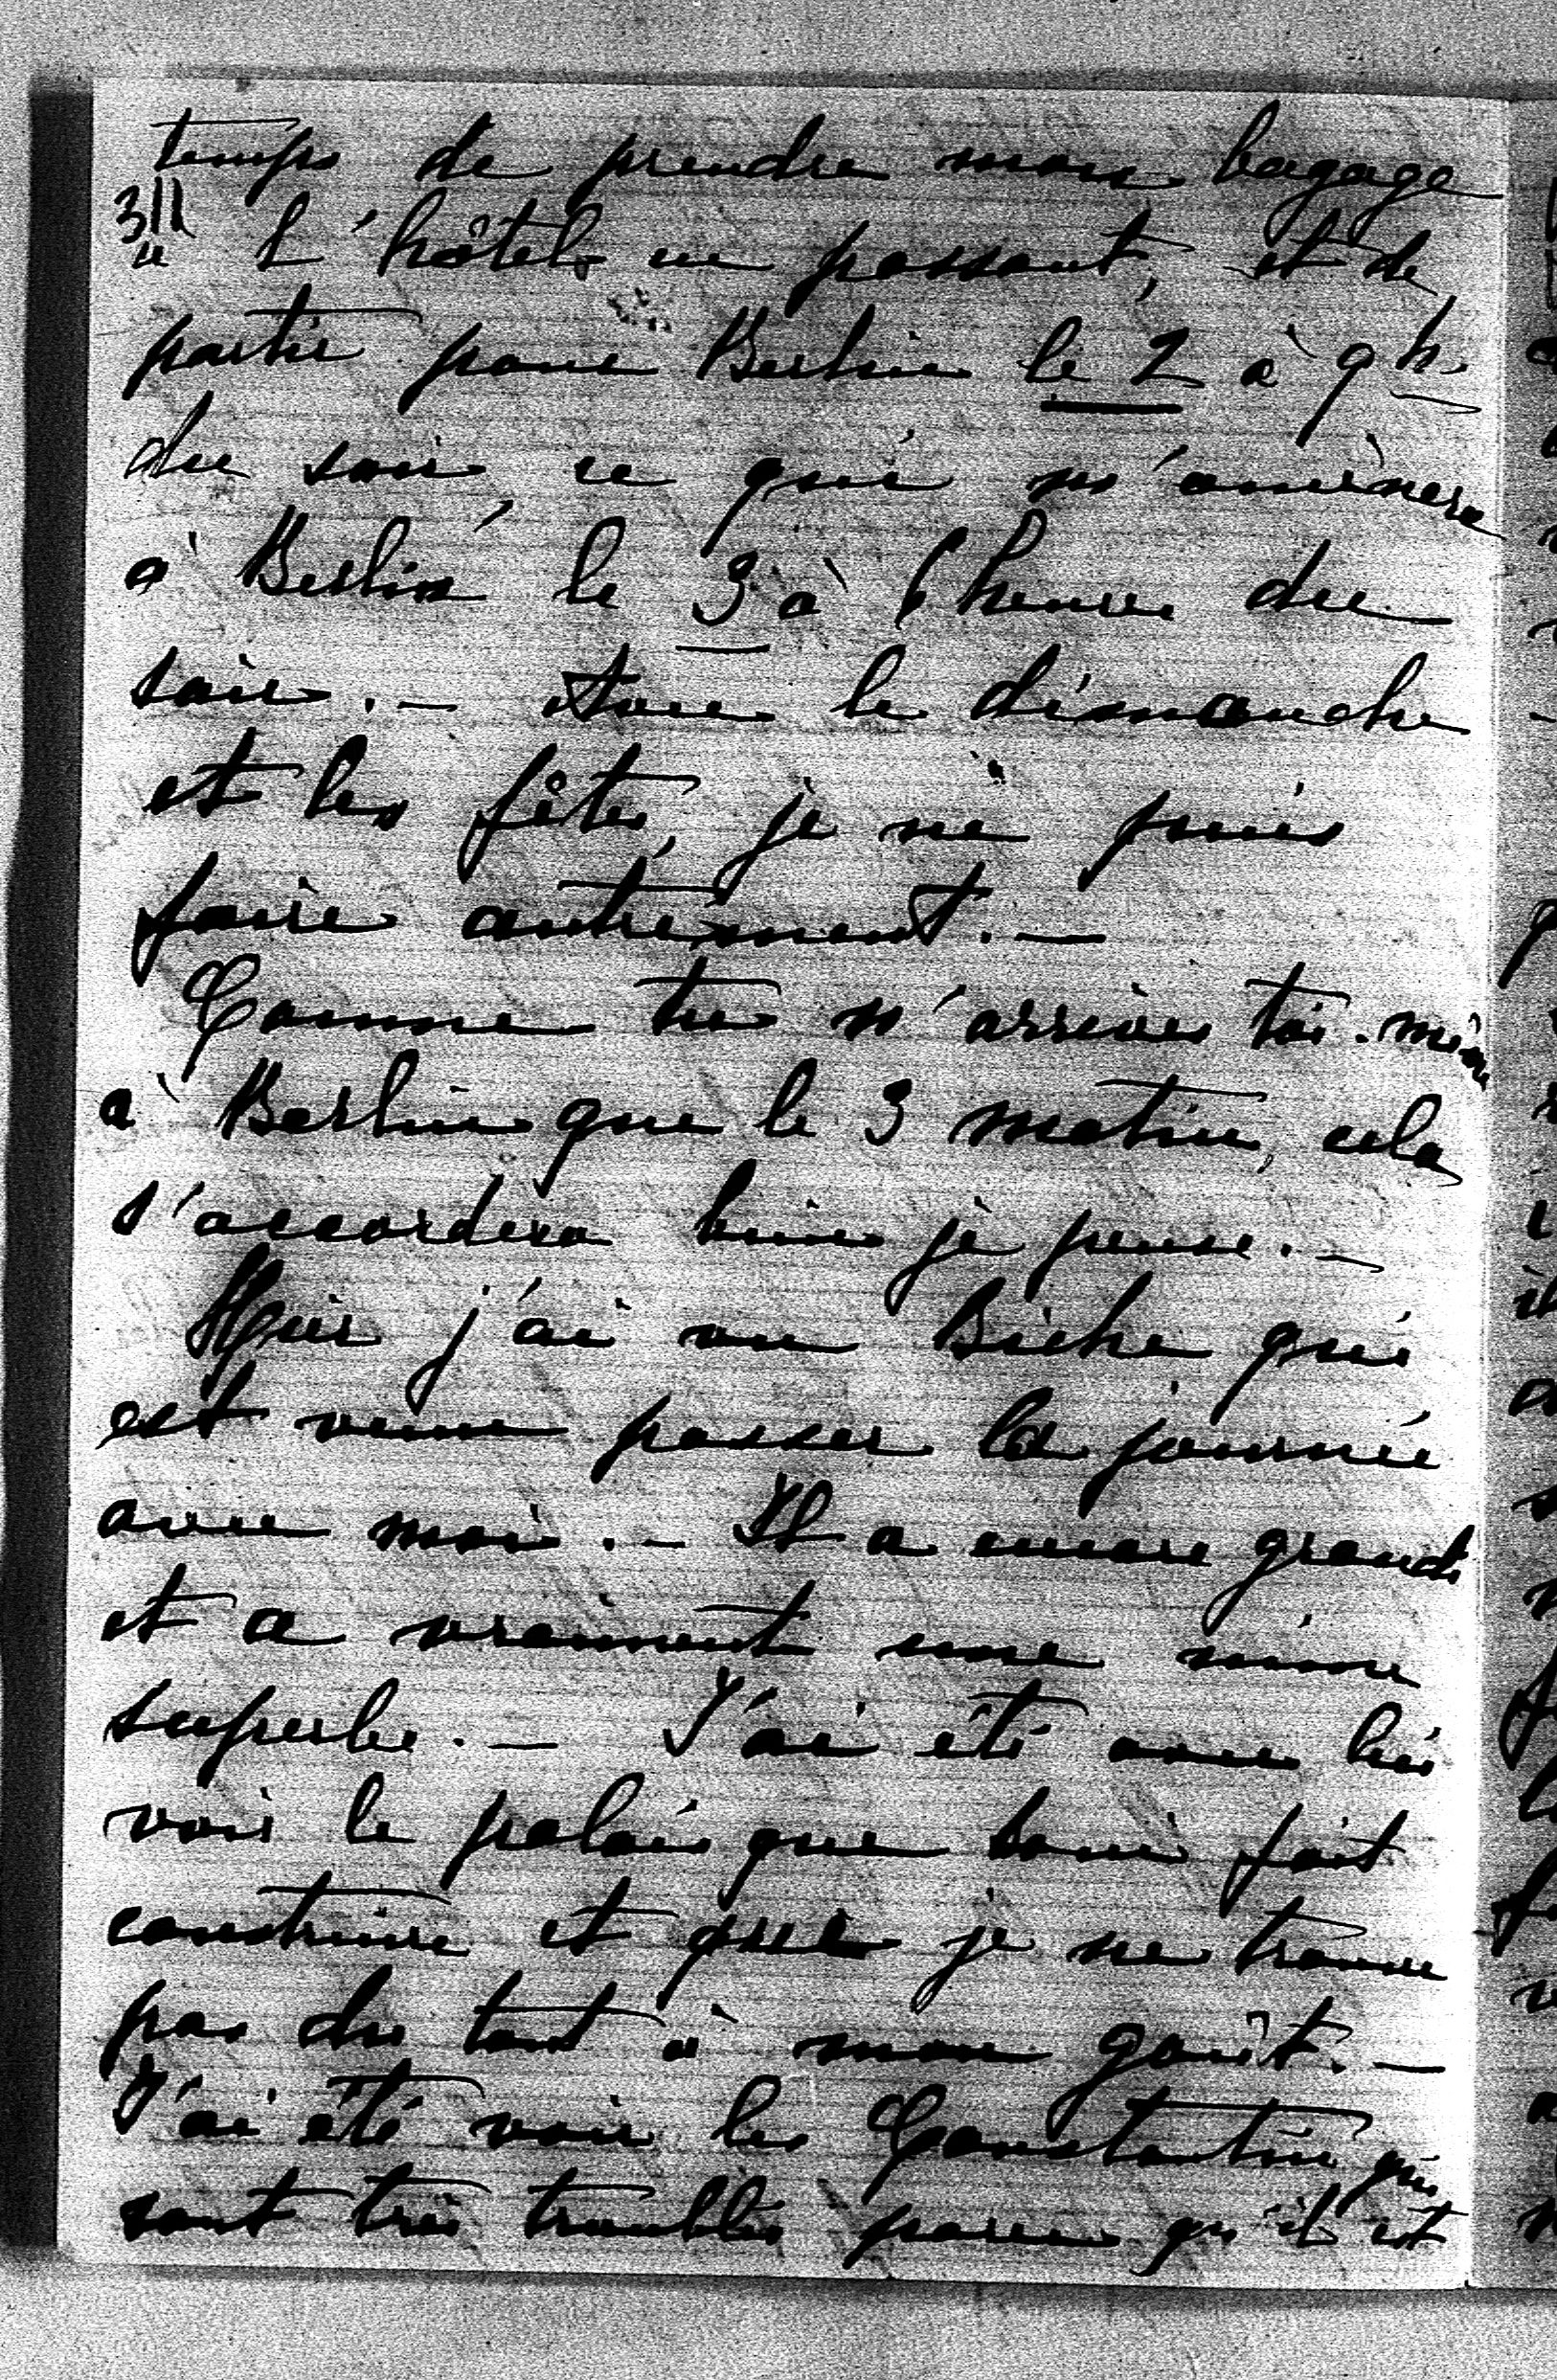 temps de prendre mon bagage
311
à L'hôtel en passant, et de
partir pour Berlin le 2 à 9 h.
du soir, ce qui m'amènera
à Berlin le 3 à 6 heures du
soir. – Avec le dimanche
et les fêtes, je ne puis
faire autrement. –
Comme tu n'arrives toi-même
à Berlin que le 3 matin, cela
s'accordera bien je pense. –
Hier j'ai vu Biche qui
est venu passer la journée
avec moi. – Il a encore grandi
et a vraiment une mine
superbe. – J'ai été avec lui
voir le palais que fait
construire et que je ne trouve
pas du tout à mon goût. –
J'ai été voir les Constantin qui
sont très troublés parce qu'il est